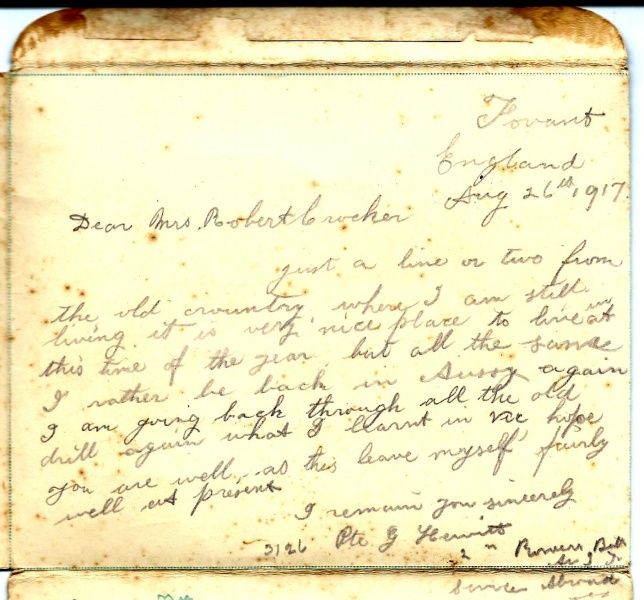 Fovant
England
Aug 26th, 1917.
Dear Mrs. Robert Crocker
just a line or two from
the old crountry, where I am still
living it is very, nice place to live in at
this time of the year but all the same
I rather be back in Aussy again
I am going back through all the old
drill again what I learnt in Vic hope
you are well as this leave myself fairly
well at present
I remain you sincerely
3126 Pte G Hewitt
2 " Pioneers Batt
A I F
Service Abroad